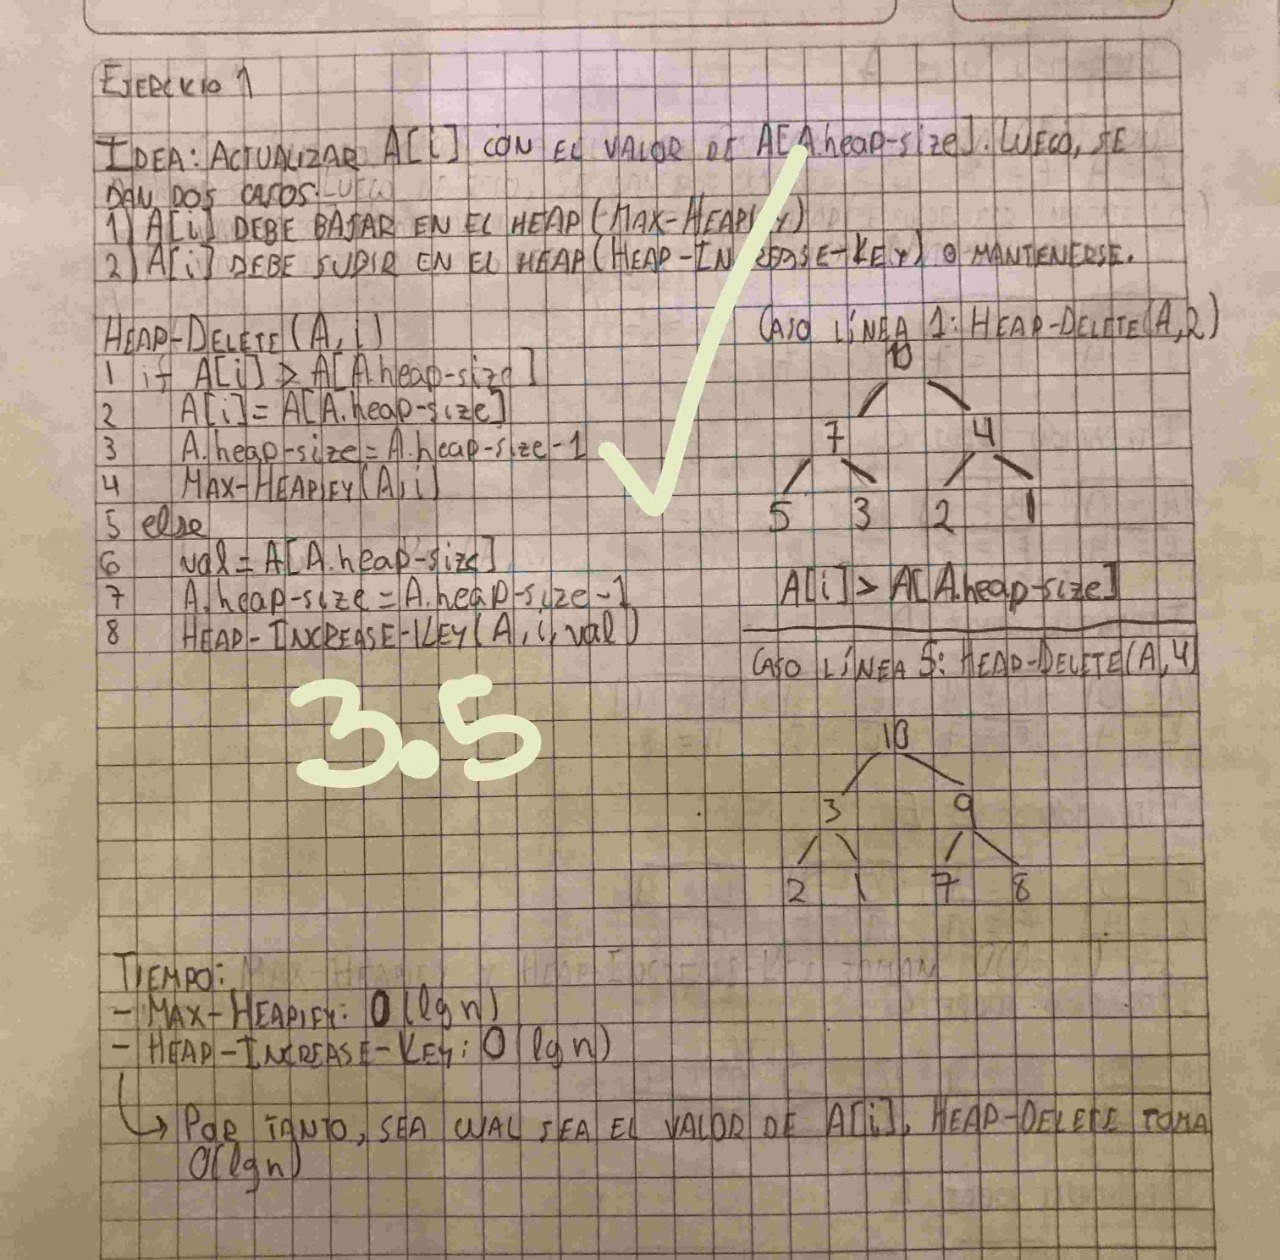 EJERCICIO 1
IDEA: ACTUALIZAR A[i] CON EL VALOR DE A[A.heap-size]. LUEGO, SE
DAN DOS CASOS:
1) A[i] DEBE BAJAR EN EL HEAP (MAX-HEAPIFY)
2) A[i] DEBE SUBIR EN EL HEAP (HEAP-INCREASE-KEY) O MANTENERSE.
HEAP-DELETE(A, i)
1 if A[i] > A[A.heap-size]
2 A[i] = A[A.heap-size]
3 A.heap-size = A.heap-size-1
4 MAX-HEAPIFY(A, i)
5 else
6 val = A[A.heap-size]
7 A.heap-size = A.heap-size-1
8 HEAP-INCREASE-KEY(A, i, val)
3.5
CASO LÍNEA 1: HEAP-DELETE(A,2)
10
7 4
5 3 2 1
A[i] > A[A.heap-size]
CASO LÍNEA 5: HEAP-DELETE(A,4)
10
3 9
2 1 7 8
TIEMPO:
- MAX-HEAPIFY: O(lg n)
- HEAP-INCREASE-KEY: O(lg n)
POR TANTO, SEA CUAL SEA EL VALOR DE A[i], HEAP-DELETE TOMA
O(lg n)